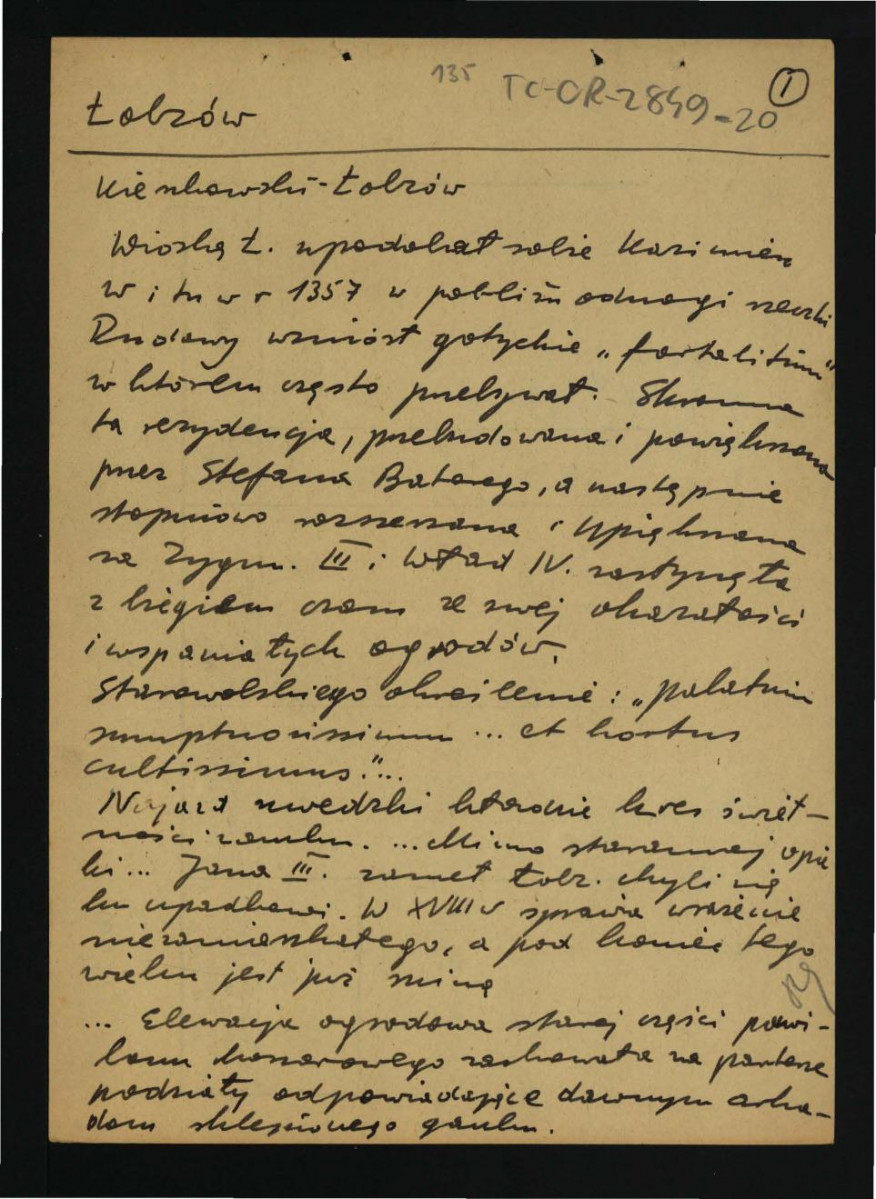 135 TC-OR-2849-20 1
Łobzów
Kieszkowski-Łobzów
Wioskę Ł. upodobał sobie Kazimierz
W i tu w r 1357 w pobliżu odnogi rzeczki
Rudawy wzniósł gotyckie „fortalitium"
w którem często przebywał. Skromna
ta rezydencja, przebudowana i powiększona
przez Stefana Batorego, a następnie
stopniowo rozszerzana i upiększana
za Zygm. III i Wład IV. zasłynęła
z biegiem czasu ze swej okazałości
i wspaniałych ogrodów.
Starowolskiego określenie: „palatium
sumptuosissimum ... et hortus
cultissimus."...
Najazd szwedzki kładzie kres świet-
ności zamku. ... Mimo starannej opie
ki... Jana III. zamek Łobz. chyli się
ku upadkowi. W XVIII w sprawia wrażenie
niezamieszkałego, a pod koniec tego
wieku jest już ruiną
... Elewacja ogrodowa starej części pawi-
lonu koszarowego zachowała na parterze
podziały odpowiadające dawnym arka-
dom sklepionego ganku.